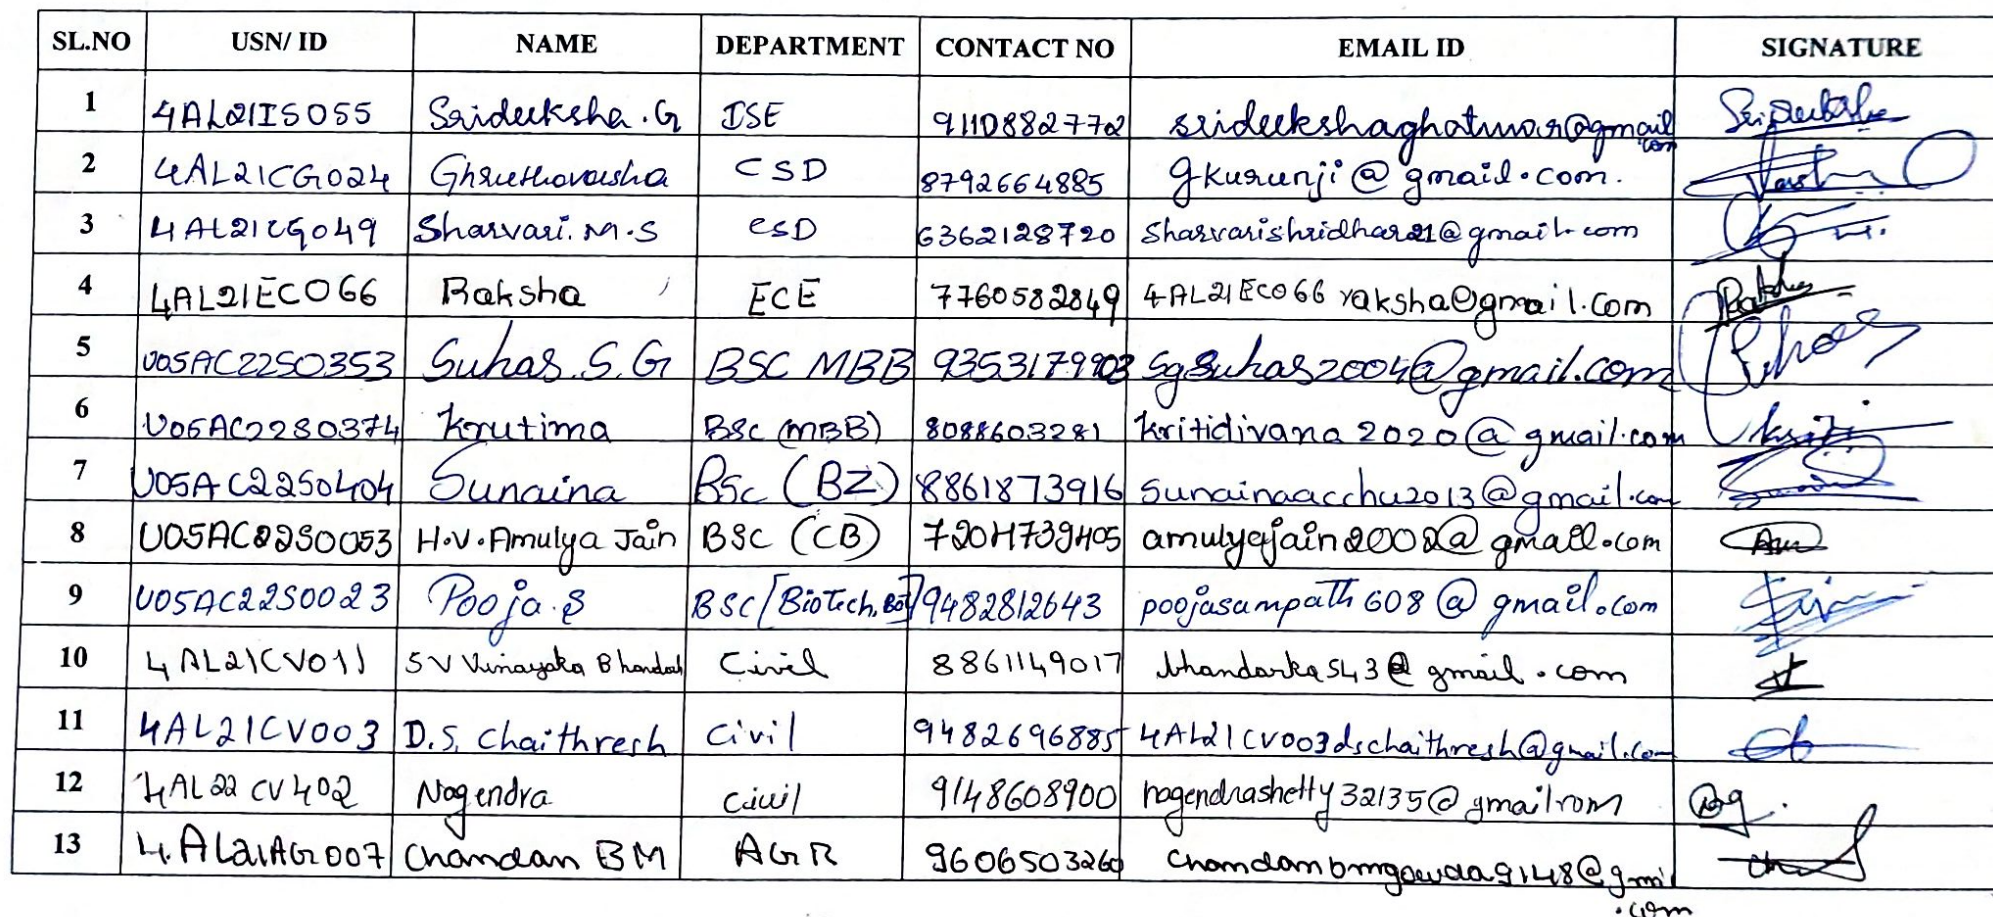 SL.NO USN/ ID NAME DEPARTMENT CONTACT NO EMAIL ID SIGNATURE
1 4AL21IS055 Srideeksha.G ISE 9110882772 srideekshaghatwar@gmail.com
2 4AL21CG024 Ghruthavarsha CSD 8792664885 gkurunji@gmail.com.
3 4AL21CG049 Sharvari.M.S CSD 6362128720 sharvarishridhar21@gmail.com
4 4AL21EC066 Raksha ECE 7760582849 4AL21EC066raksha@gmail.com
5 U05AC22S0353 Suhas.S.G BSC MBB 9353179903 sgsuhas2004@gmail.com
6 U05AC22S0374 Krutima BSc (MBB) 8088603281 kritidivana2020@gmail.com
7 U05AC22S0404 Sunaina BSc (BZ) 8861873916 sunainaacchu2013@gmail.com
8 U05AC22S0053 H.V.Amulya Jain BSC (CB) 7204739405 amulyajain2002@gmail.com
9 U05AC22S0023 Pooja.S BSC[BioTech.Bot] 9482812643 poojasampath608@gmail.com
10 4AL21CV011 SV Vinayaka Civil 8861149017 bhandarka543@gmail.com
11 4AL21CV003 D.S. Chaithresh Civil 9482696885 4AL21CV003dschaithresh@gmail.com
12 4AL22CV402 Nagendra civil 9148608900 nagendrashetty32135@gmail.com
13 4AL21AG007 Chandan BM AGR 9606503260 chandanbmgowda9148@gmil
.com